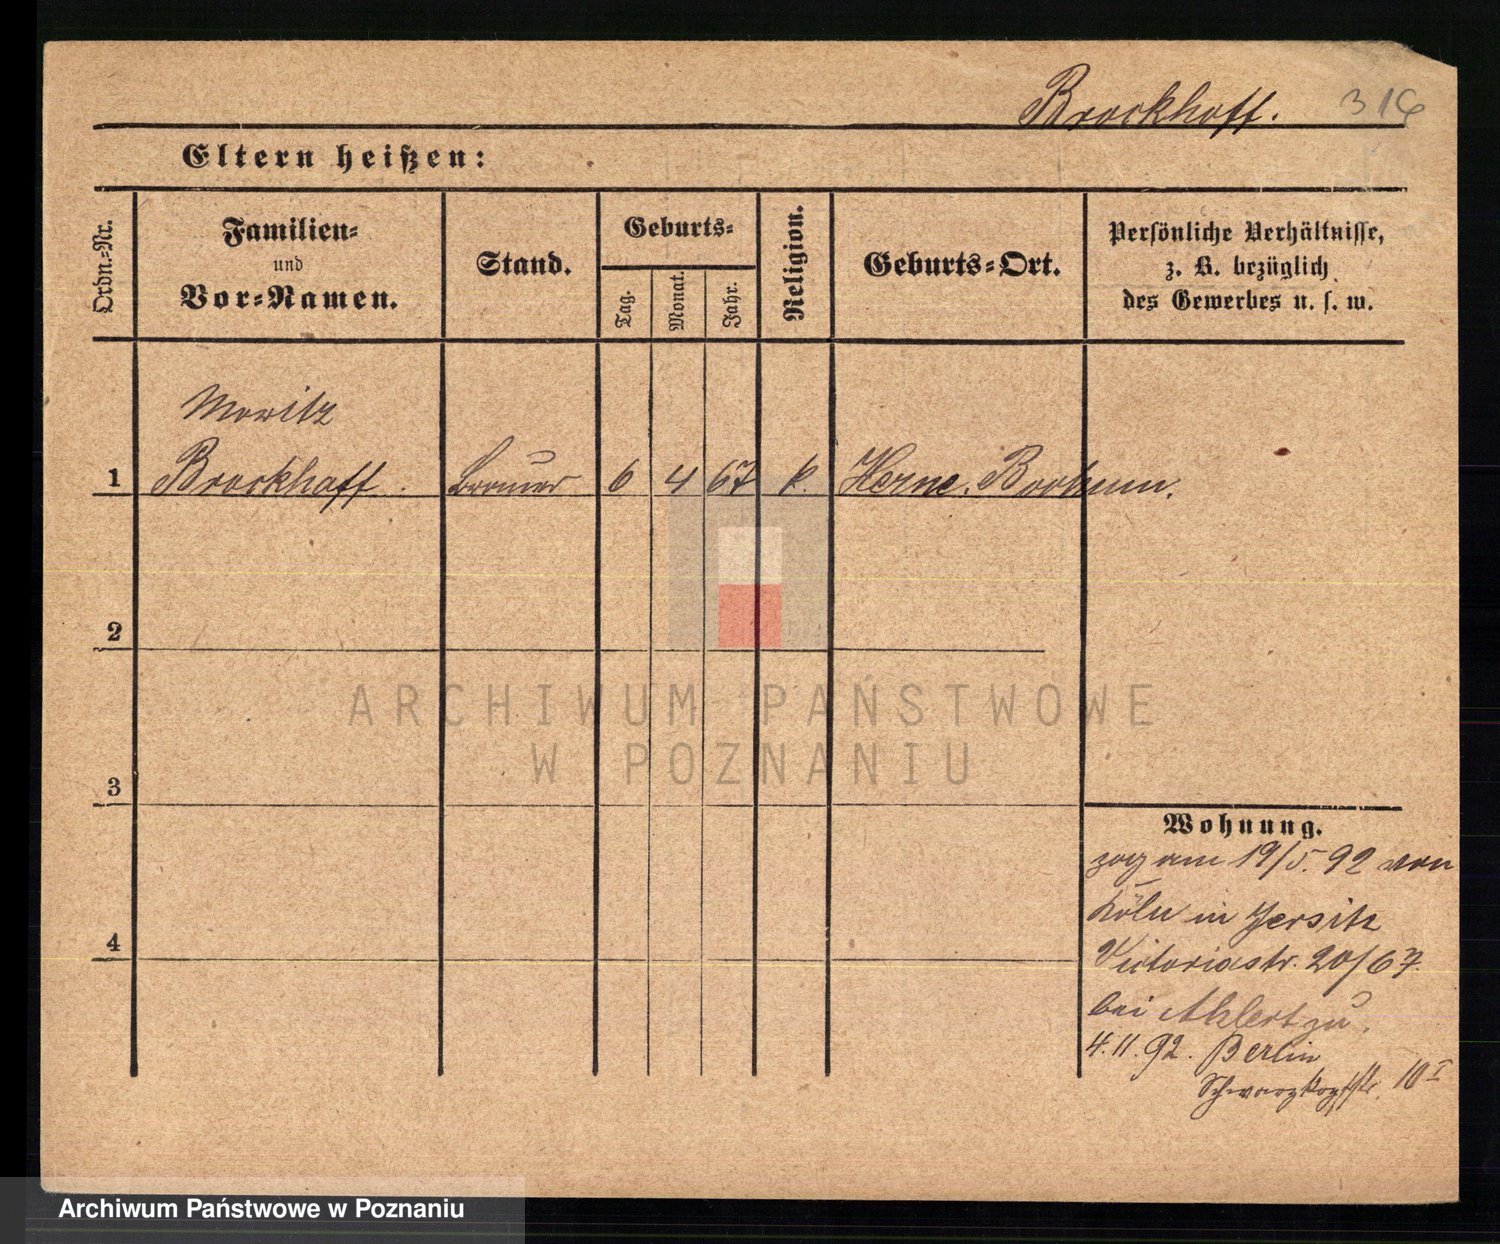 Brockhoff. 316
Eltern heißen:
Ordn.-Nr.
Familien-
und
Vor-Namen.
Stand.
Geburts-
Tag.
Monat.
Jahr.
Religion.
Geburts-Ort.
Persönliche Verhältnisse,
z. B. bezüglich
des Gewerbes u. s. w.
Moritz
1 Brockhoff. Brauer 6 4 67 k. Herne. Bochum.
2
3
4
Wohnung.
zog am 19/5. 92 von
Köln in Jersitz
Victoriastr. 20/67.
bei Ahlert zu.
4.11.92. Berlin
Schwarzkopfstr. 10 I
ARCHIWUM PAŃSTWOWE
W POZNANIU
Archiwum Państwowe w Poznaniu